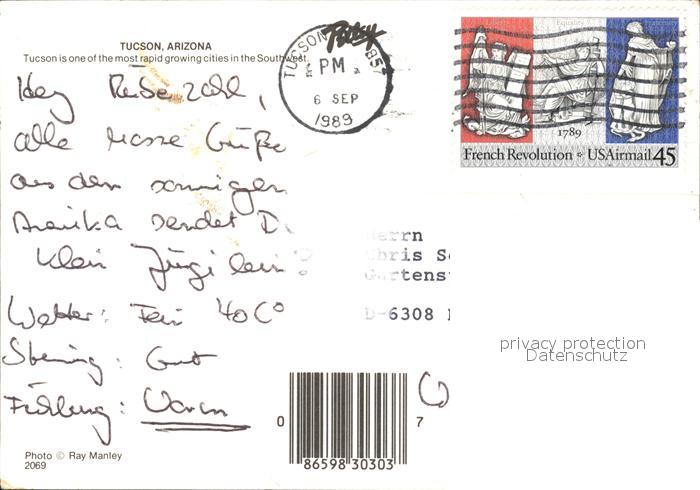 TUCSON, ARIZONA
Tucson is one of the most rapid growing cities in the Southwest.
TUCSON
857
PM
6 SEP
1989
Equality
1789
French Revolution • USAirmail 45
Hey
alle
aus dem sonnigen
Amerika sendet D
Klein
Herrn
Chris S
Gartens
D-6308
Wetter: Fein 40 C°
Stimmung: Gut
Warm
privacy protection
Datenschutz
0
86598 30303
7
Photo © Ray Manley
2069